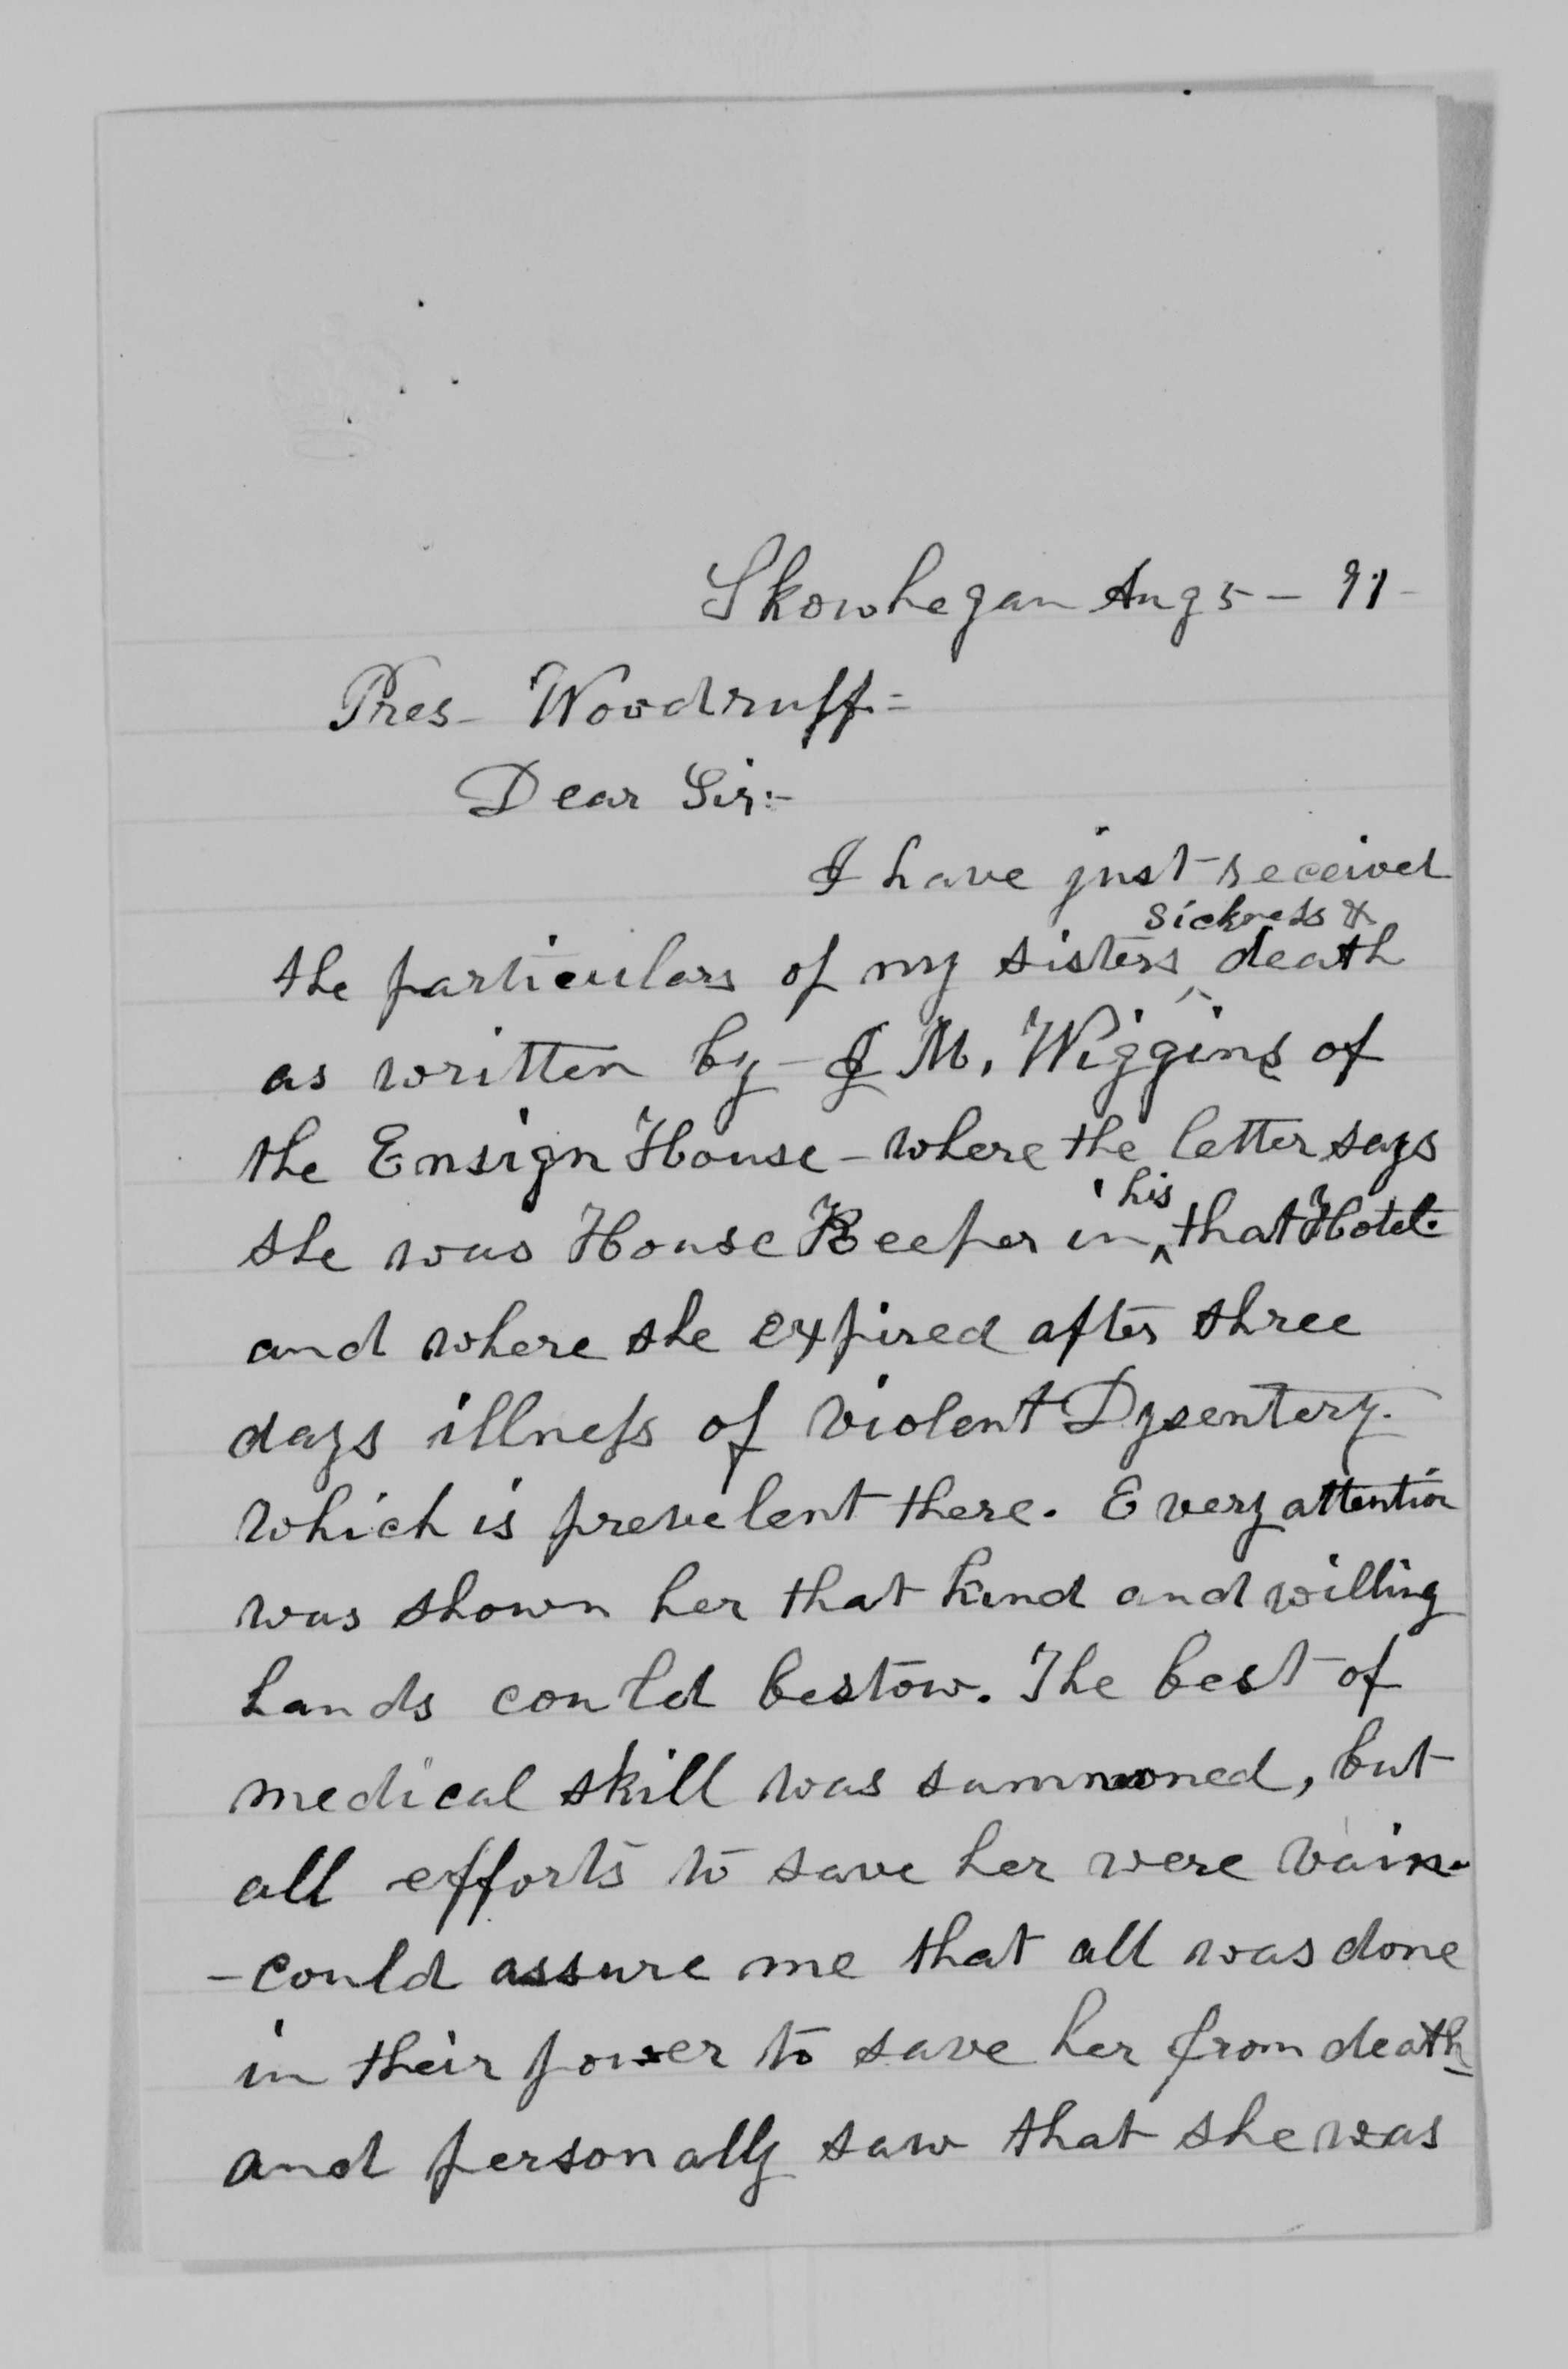 Skowhegan Aug 5 - 91 -
Pres - Woodruff -
Dear Sir :-
I have just received
the particulars of my sisters sickness & death
as written by - J M. Wiggins of
the Ensign House - where the letter says
she was House Keeper in his that Hotel.
and where she expired after three
days illness of violent Dysentery.
which is prevelent there. Every attention
was shown her that kind and willing
hands could bestow. The best of
medical skill was summoned, but
all efforts to save her were vain.
- could assure me that all was done
in their power to save her from death
and personally saw that she was